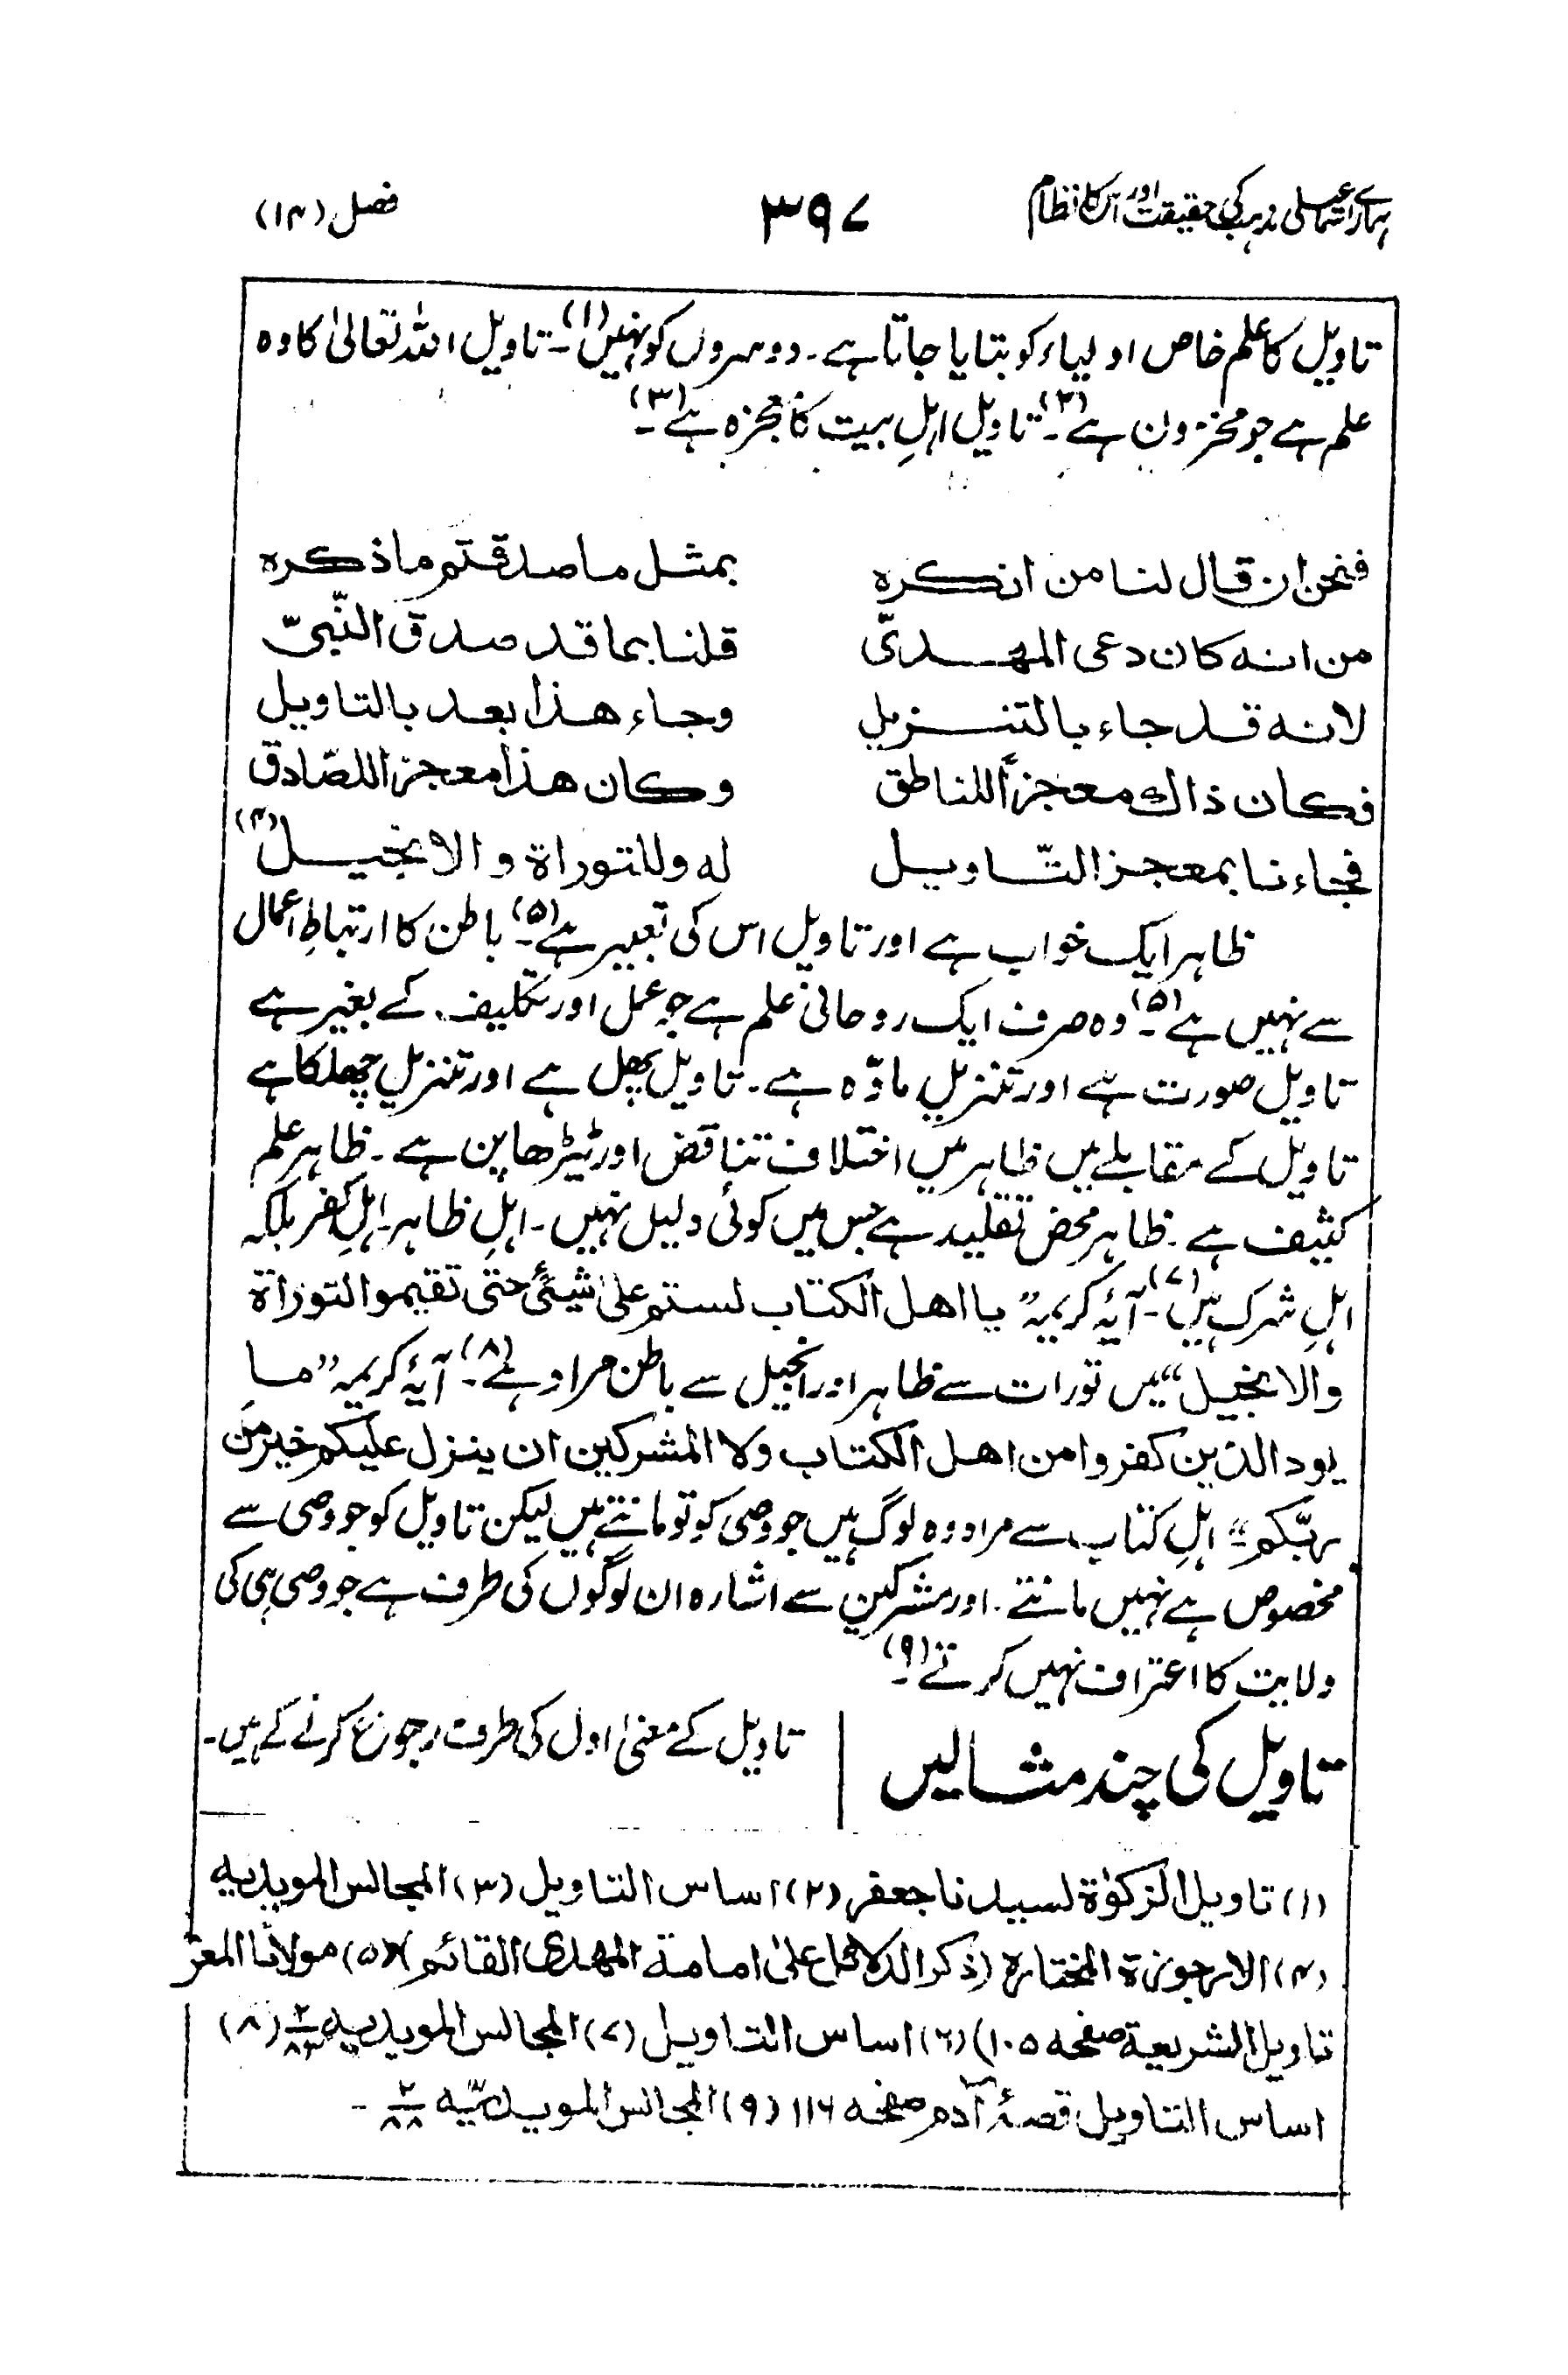 ہمارے اسماعیلی مذہب کی حقیقت اور اس کا نظام ۳۹۷ فصل (۱۴)
تاویل کا علم خاص اولیاء کو بتایا جاتا ہے۔ دوسروں کو نہیں (۱)۔ تاویل اللہ تعالیٰ کا وہ
علم ہے جو مخزون ہے (۲)۔ تاویل اہلِ بیت کا معجزہ ہے (۳)۔
فنحن ان قال لنا من انکرہ بمثل ما صدقتم ما ذکرہ
من انہ کان دعی المھدیّ قلنا بما قد صدق النّبیّ
لانہ قد جاء بالتنزیل وجاء ھذا بعد بالتاویل
فکان ذاك معجزاً للناطق وکان ھذا معجزا للصّادق
فجاءنا بمعجز التّاویل لہ وللتوراۃ والانجیل (۴)
ظاہر ایک خواب ہے اور تاویل اس کی تعبیر ہے (۵)۔ باطن کا ارتباط اعمال
سے نہیں ہے (۵)۔ وہ صرف ایک روحانی علم ہے جو عمل اور تکلیف کے بغیر ہے
تاویل صورت ہے اور تنزیل مادّہ ہے۔ تاویل پھل ہے اور تنزیل چھلکا ہے
تاویل کے مقابلے میں ظاہر میں اختلاف تناقض اور ٹیڑھا پن ہے۔ ظاہر علم
کثیف ہے۔ ظاہر محض تقلید ہے جس میں کوئی دلیل نہیں۔ اہلِ ظاہر۔ اہلِ کفر بلکہ
اہلِ شرک ہیں (۷)۔ آیۂ کریمہ ”یا اھل الکتاب لستم علیٰ شیئیً حتی تقیموا التوراۃ
والانجیل“ میں تورات سے ظاہر اور انجیل سے باطن مراد ہے (۸)۔ آیۂ کریمہ ”ما
یود الذین کفروا من اھل الکتاب ولا المشرکین ان ینزل علیکم خیر من
ربّکم“ اہلِ کتاب سے مراد وہ لوگ ہیں جو وصی کو تو مانتے ہیں لیکن تاویل کو جو وصی سے
مخصوص ہے نہیں مانتے۔ اور مشرکین سے اشارہ ان لوگوں کی طرف ہے جو وصی ہی کی
ولایت کا اعتراف نہیں کرتے (۹)۔
تاویل کی چند مثالیں تاویل کے معنیٰ اول کی طرف رجوع کرنے کے ہیں۔
(۱) تاویل الزکوٰۃ لسیدنا جعفر (۲) اساس التاویل (۳) المجالس المویدیہ
(۴) الارجوزۃ المختارۃ (ذکر الدلائل علیٰ امامۃ المھدی القائم) (۵) مولانا المعز
تاویل الشریعۃ صفحہ ۱۰۵) (۶) اساس التاویل (۷) المجالس المویدیہ (۸)
اساس التاویل قصۂ آدم صفحہ ۱۱۶ (۹) المجالس المویدیّہ ۲/۸۸ ۔